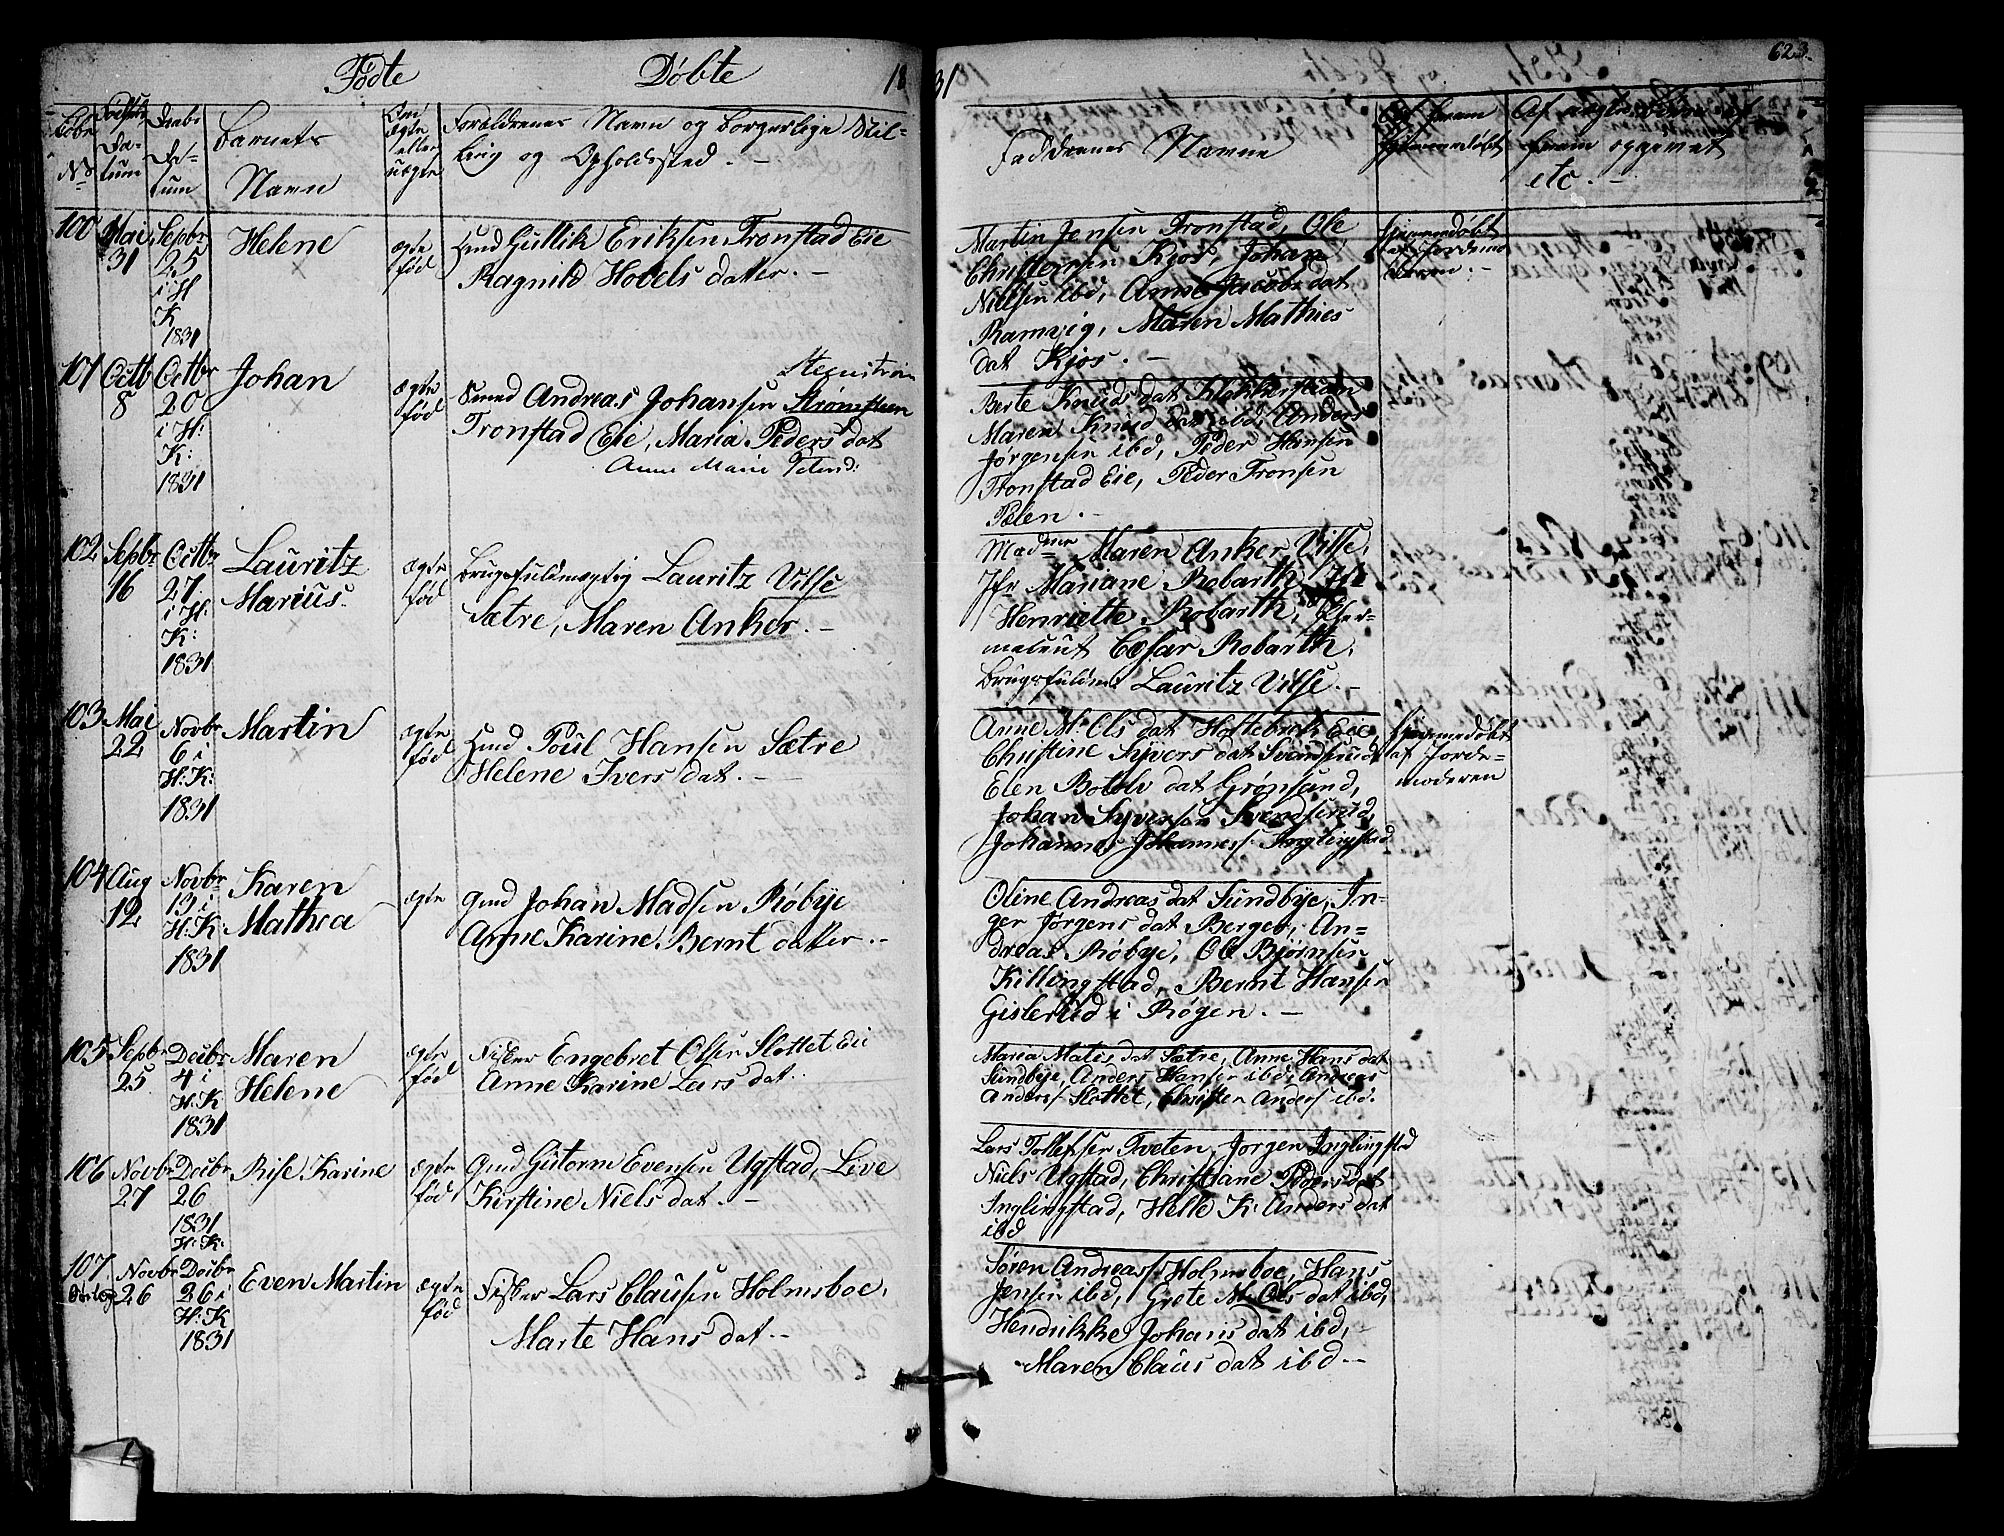 Fødte Døbte 18
Løbe No
Fødsels Datum
Daabs Datum
Barnets Navn
Om ægte eller uægte
Forældrenes Navn og borgerlige Stilling og Opholdssted. –
100
Mai 31
Sepbr 25 i H K 1831
Helene
ægte fød
Hmd Gullik Eriksen Tronstad Eie
Ragnild Hovels datter. –
101
Octb 8
Octbr 20 i H: K: 1831
Johan
ægte fød
Smed Andreas Johansen Strømsteen
Tronstad Eie, Maria Peders dat
Anne Marie
102
Sepbr 16
Octbr 27 i H: K: 1831
Lauritz Marius.
ægte fød
Brugsfuldmægtig Lauritz Vilse
Sætre, Maren Anker. –
103
Mai 22
Novbr 6 i H: K: 1831
Martin
ægte fød
Hmd Poul Hansen Sætre
Helene Ivers dat. –
104
Aug 12
Novbr 13 i H: K 1831
Karen Mathea
ægte
Gmd Johan Madsen Røbye
Anne Karine Bernt datter. –
105
Sepbr 25
Decbr 4 i H: K 1831
Maren Helene
ægte fød
Fisker Engebret Olsen Slottet Eie
Anne Karine Lars dat.
106
Novbr 27
Decbr 26 1831 H: K:
Rise Karine
ægte fød
Gmd Gutorm Evensen Ugstad, Live
Kirstine Niels dat. –
107
Novbr 26
Decbr 26 i H: K 1831
Even Martin
ægte fød
Fisker Lars Clausen Holmsboe,
Marte Hans dat. –
31
623.
Faddrenes Navne
Om hjemmedøbt
etc. –
Martin Jensen Tronstad, Ole
Christensen Kjos, Johan
Nielsen ibd, Anne Jacobs dat
Ramvig, Maren Mathies
dat Kjos. –
hjemmedøbt af Jordemoderen. –
Berte Knuds dat Klokkersteen
Maren Knud dat ibd, Anders
Jørgensen ibd, Peder Hansen
Tronstad Eie, Peder Tronsen
Pælen. –
Madmer Maren Anker Vilse,
Jfr Mariane Robarth, Jfr
Henriette Robarth,
Cæsar Robarth,
Brugsfuldm: Lauritz Vilse. –
Anne M: Ols dat Hottebræk Eie,
Christine Syvers dat Svendsrud,
Elen Botolv dat Grønsund,
Johan Syversen Svendserud,
Johannes Johanness: Inglingstad
hjemmedøbt af Jordemoderen
Oline Andreas dat Sundbye, In=
ger Jørgens dat Berger, An=
dreas Røbye, Ole Bjørnsen
Killingstad, Bernt Hansen
Gislerud i Røgen. –
Maria Matis dat Sætre, Anne Hans dat
Sundbye, Anders Hansen ibd, Andreas
Anders: Slottet, Christen Anders: ibd.
Lars Tollefsen Tveten, Jørgen Inglingstad
Niels Ugstad, Christiane Peders dat
Inglingstad, Helle K: Anders dat
ibd
Søren Andreass: Holmsboe, Hans
Jensen ibd, Grete M: Ols dat ibd,
Hendrikke Johans dat ibd,
Maren Claus dat ibd –